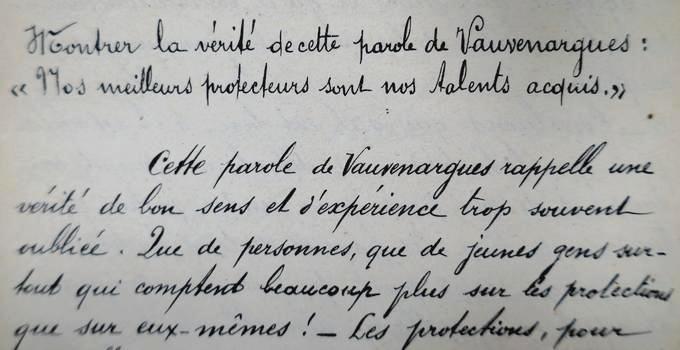 Montrer la vérité de cette parole de Vauvenargues :
« Nos meilleurs protecteurs sont nos talents acquis. »
Cette parole de Vauvenargues rappelle une
vérité de bon sens et d'expérience trop souvent
oubliée. Que de personnes, que de jeunes gens sur-
tout qui comptent beaucoup plus sur les protections
que sur eux-mêmes ! — Les protections, pour